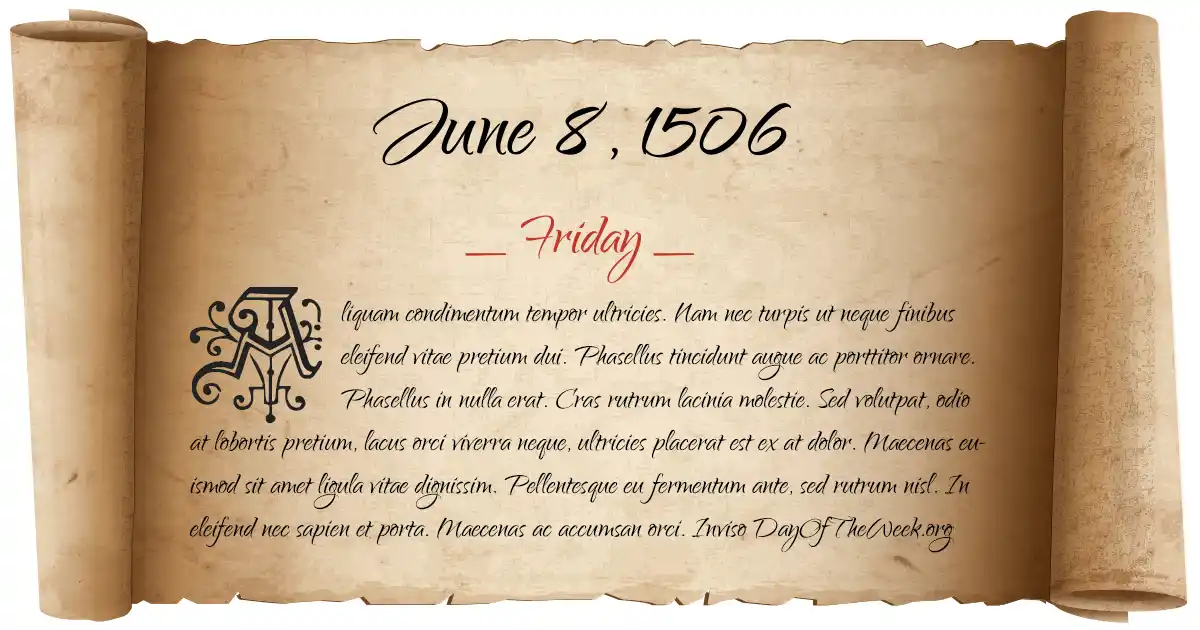 June 8, 1506
_ Friday _
Aliquam condimentum tempor ultricies. Nam nec turpis ut neque finibus
eleifend vitae pretium dui. Phasellus tincidunt augue ac porttitor ornare.
Phasellus in nulla erat. Cras rutrum lacinia molestie. Sed volutpat, odio
at lobortis pretium, lacus orci viverra neque, ultricies placerat est ex at dolor. Maecenas eu-
ismod sit amet ligula vitae dignissim. Pellentesque eu fermentum ante, sed rutrum nisl. In
eleifend nec sapien et porta. Maecenas ac accumsan orci. Inviso DayOfTheWeek.org